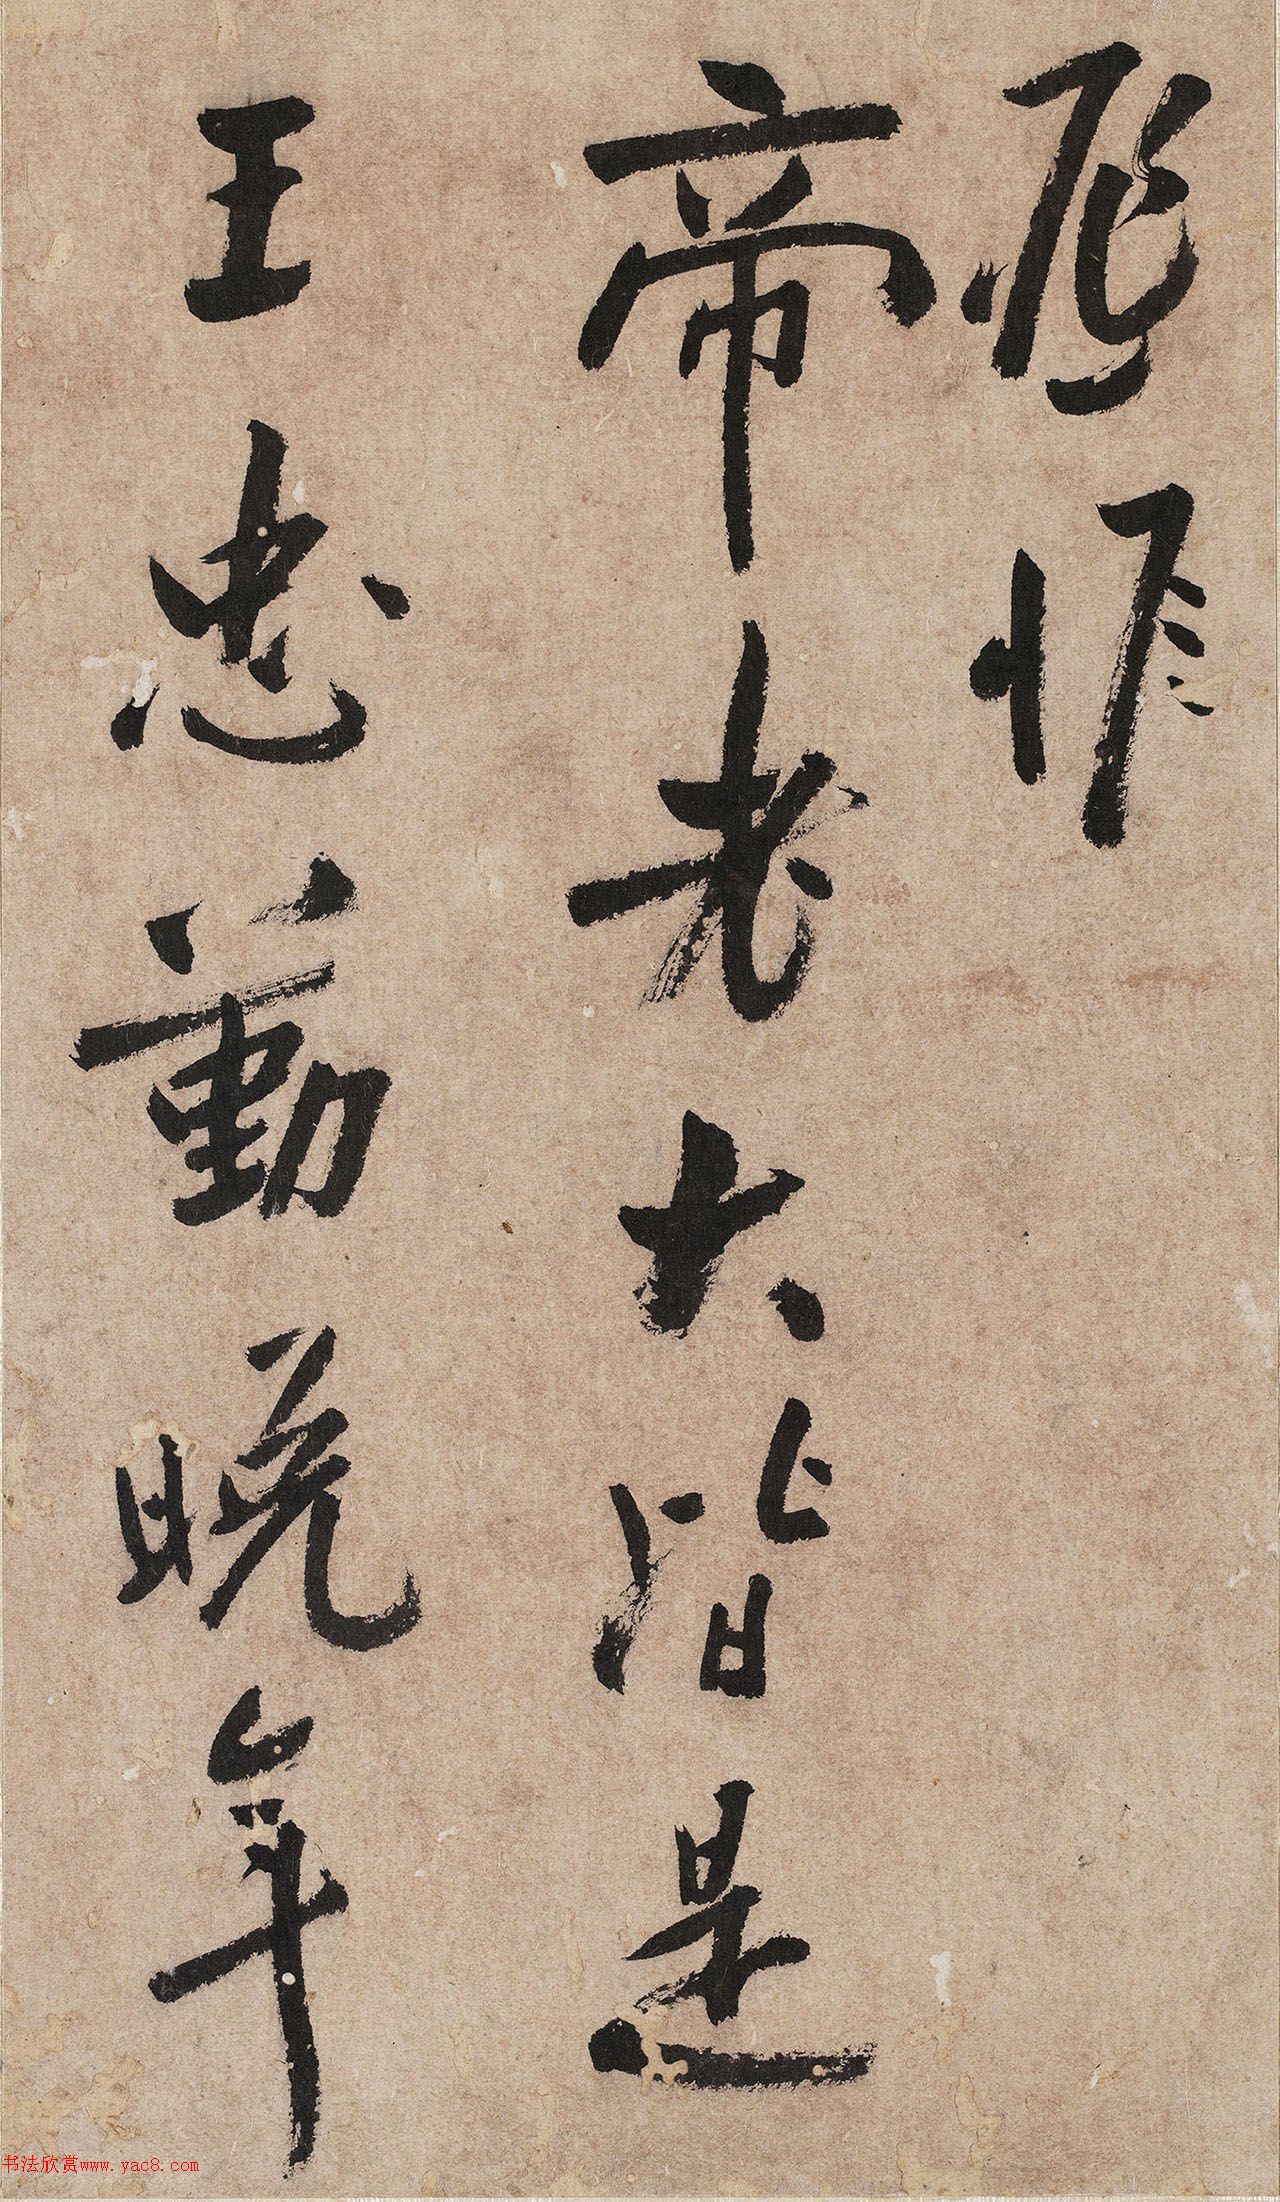 帝老大皆是
王忠勤晚年
书法欣赏www.yac8.com